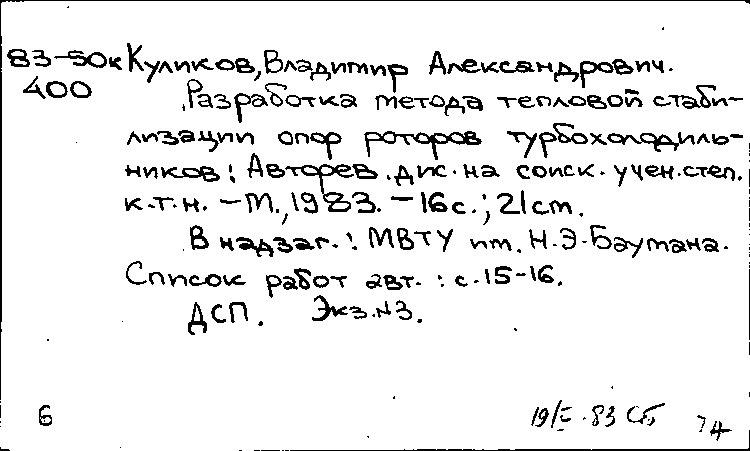 83-50к Куликов, Владимир Александрович.
400 Разработка метода тепловой стаби-
лизации опор роторов турбохолодиль-
ников: Автореф. дис. на соиск. учен. степ.
к.т.н. - М., 1983. - 16 с.; 21 cm.
В надзаг.: МВТУ им. Н.Э. Баумана.
Список работ авт.: с. 15-16.
ДСП. Экз. №3.
6 83 Сб